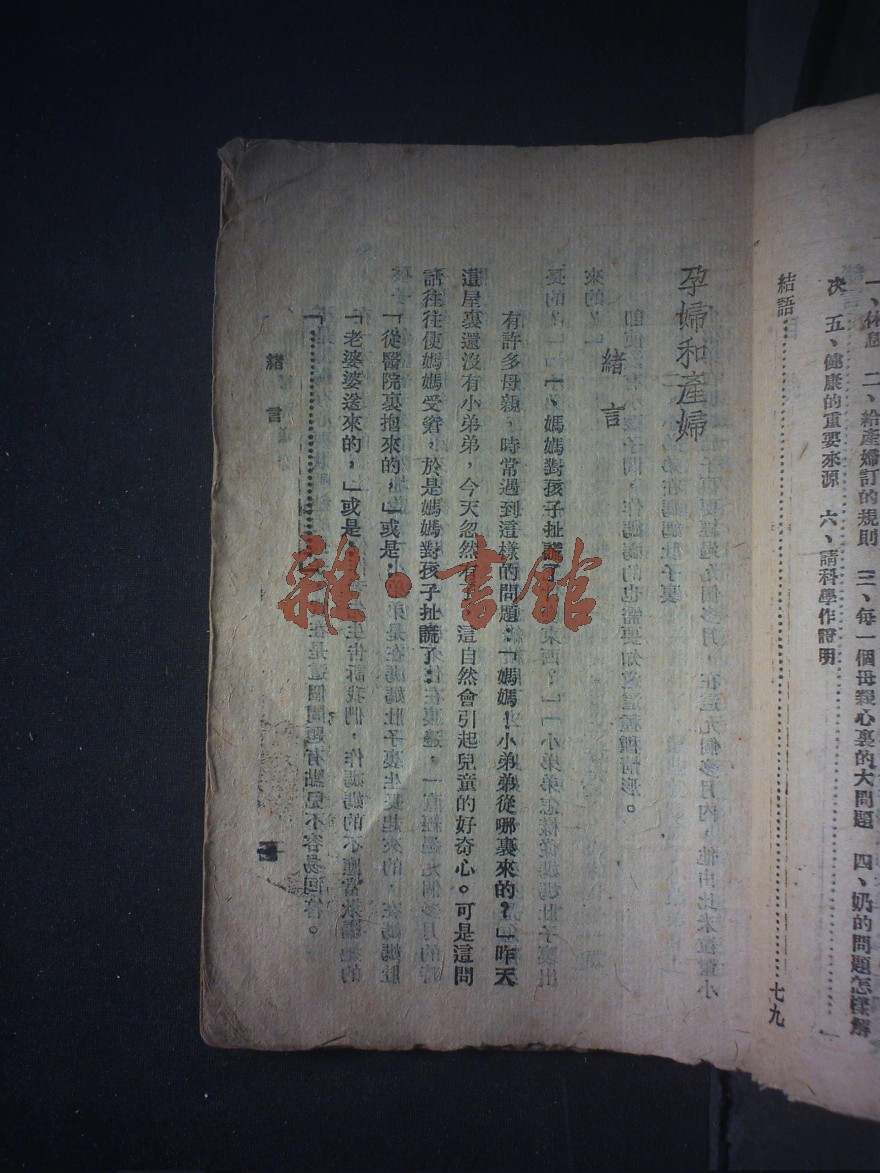 一、休息 二、給產婦訂的規則 三、每一個母親心裏的大問題 四、奶的問題怎樣解
決 五、健康的重要來源 六、請科學作證明
結語……………………七九
孕婦和產婦
緒言
一、媽媽對孩子扯謊了
有許多母親，時常遇到這樣的問題：「媽媽！小弟弟從哪裏來的？」昨天
這屋裏還沒有小弟弟，今天忽然有了，這自然會引起兒童的好奇心。可是這問
話往往使媽媽受窘，於是媽媽對孩子扯謊了：
「從醫院裏抱來的，」或是：
「老婆婆送來的，」或是：
「……………………
緒言
雜·書館